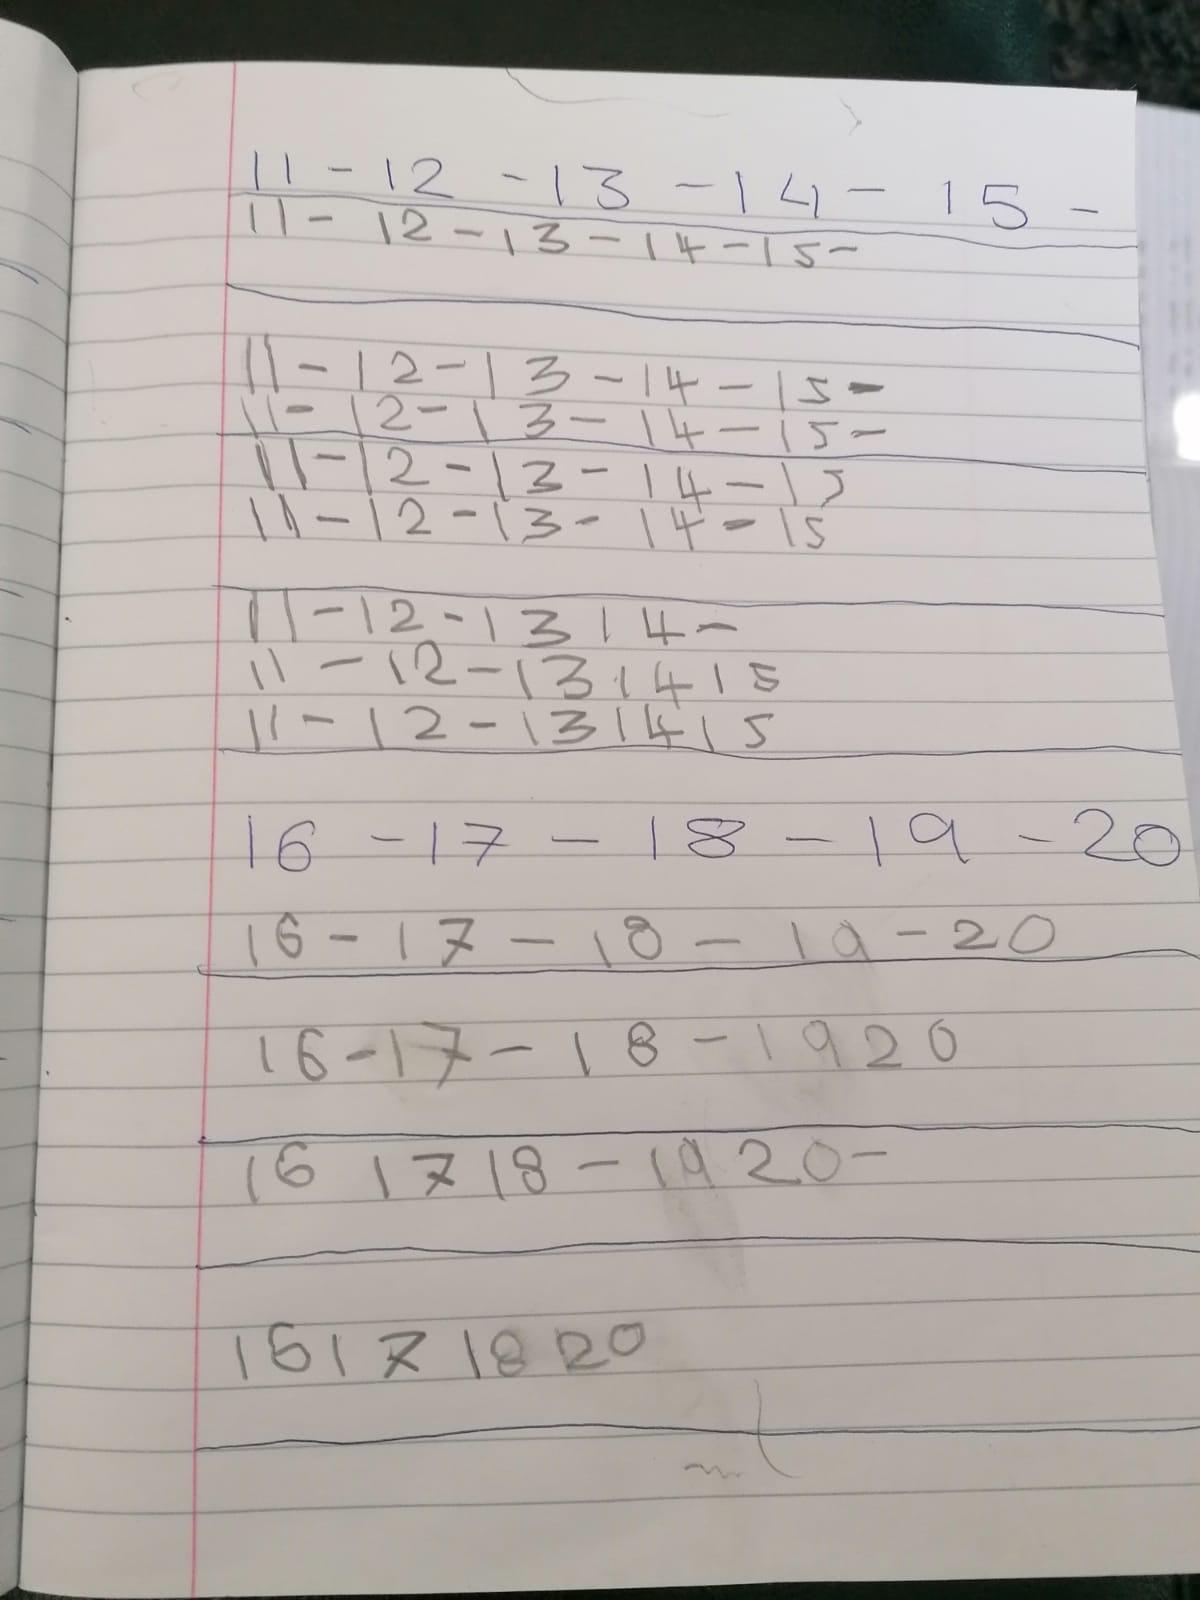 11 - 12 - 13 - 14 - 15 -
11 - 12 - 13 - 14 - 15 -
11 - 12 - 13 - 14 - 15 -
11 - 12 - 13 - 14 - 15 -
11 - 12 - 13 - 14 - 15
11 - 12 - 13 - 14 - 15
11 - 12 - 13 14 -
11 - 12 - 13 14 15
11 - 12 - 13 14 15
16 - 17 - 18 - 19 - 20
16 - 17 - 18 - 19 - 20
16 - 17 - 18 - 19 20
16 17 18 - 19 20 -
16 17 18 20